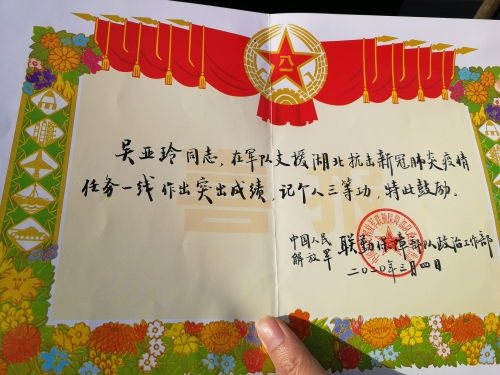 八一
吴亚玲同志，在军队支援湖北抗击新冠肺炎疫情
任务一线作出突出成绩，记个人三等功，特此鼓励。
中国人民
解放军 联勤保障部队政治工作部
二〇二〇年三月四日
喜报